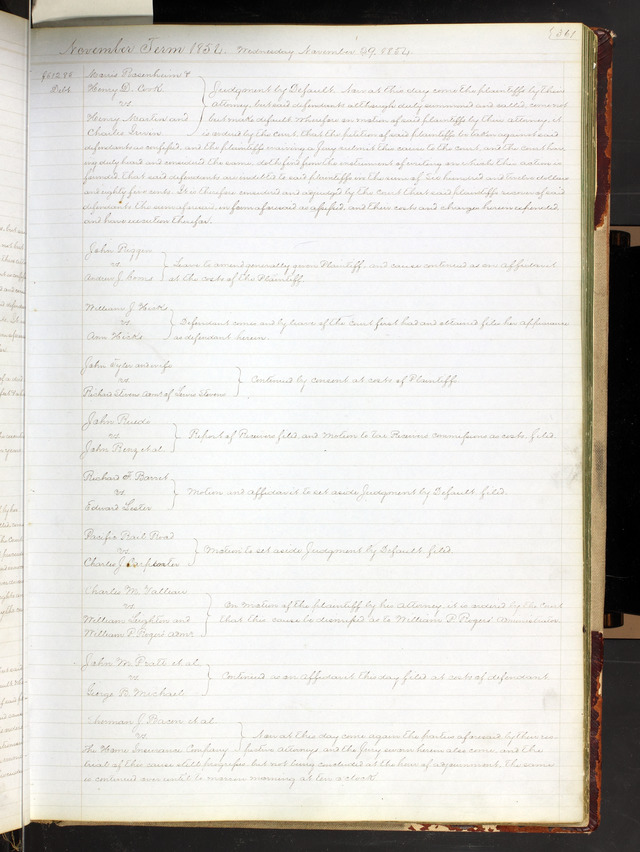 361
November Term 1854. Wednesday November 29. 1854.
$612.85 Debt
Henry D. Cook
vs
Henry Martin and
Judgment by Default. Now at this day come the plaintiffs by their
attorney, but said defendants although duly summoned and called, come not
but make default. Wherefore on motion of said plaintiffs by their attorney, it
is ordered by the court that the petition of said plaintiffs be taken against said
defendants as confessed, and the plaintiffs waiving a Jury submit this cause to the court, and the court hav-
ing duly heard and considered the same doth find from the instrument of writing on which this action is
founded that said defendants are indebted to said plaintiffs in the sum of Six hundred and twelve dollars
and eighty five cents. It is therefore considered and adjudged by the court that said plaintiffs recover of said
defendants the sum aforesaid in form aforesaid as assessed, and their costs and charges herein expended
and have execution therefor.
John
vs
Andrew J.
Leave to amend generally given Plaintiff and cause continued as on affidavit
at the costs of the Plaintiff.
William J. Hicks
vs
Ann Hicks
Defendant comes and by leave of the Court first had and obtained files her appearance
as defendant herein.
John Tyler and wife
vs
Richard Admr. of Lewis
Continued by consent at costs of Plaintiff.
John
vs
John et al
Report of Receivers filed, and motion to tax Receivers commissions as costs, filed.
Richard F. Barret
vs
Edward Lester
Motion and affidavit to set aside Judgment by Default, filed.
Pacific Rail Road
vs
Charles J. Carpenter
Motion to set aside Judgment by Default, filed.
Charles M.
vs
William Leighton and
William P. Rogers admr.
On motion of the plaintiff by his Attorney, it is ordered by the Court
that this cause be dismissed as to William P. Rogers' Administrator.
John M. Pratte et al
vs
George B. Michael
Continued as on affidavit this day filed at costs of defendant.
J. Bacon et al
vs
The Home Insurance Company
Now at this day come again the parties aforesaid by their res-
pective Attorneys and the Jury sworn herein also come, and the
trial of this cause still progresses, but not being concluded at the hour of adjournment. The same
is continued over until to morrow morning at ten o'clock.